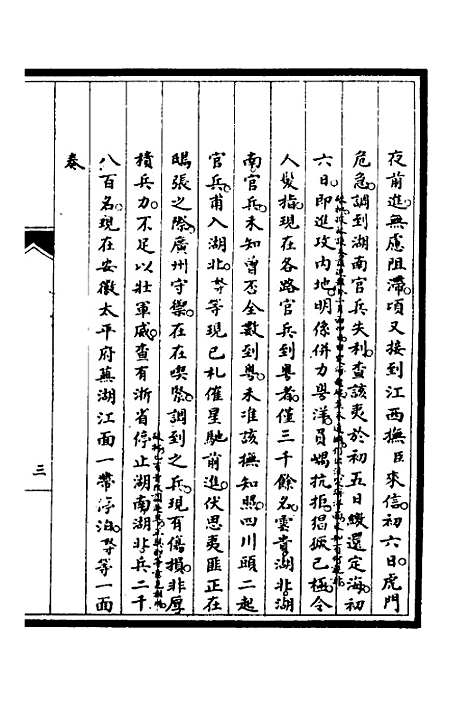 夜前進無虞阻滯項又接到江西撫臣來信初六日虎門
危急調到湖南官兵失利查該夷於初五日繳還定海初
六日即進攻內地明係併力粵洋負嵎抗拒猖獗已極令
人髮指現在各路官兵到粵者僅三千餘名雲貴湖北湖
南官兵未知曾否全數到粵未准該撫知照四川頭二起
官兵甫入湖北等現已札催星馳前進伏思夷匪正在
鴟張之際廣州守禦在在喫緊調到之兵現有傷損非厚
積兵力不足以壯軍威查有浙省停止湖南湖北兵二千
八百名現在安徽太平府蕪湖江面一帶停泊等等一面
奏
三